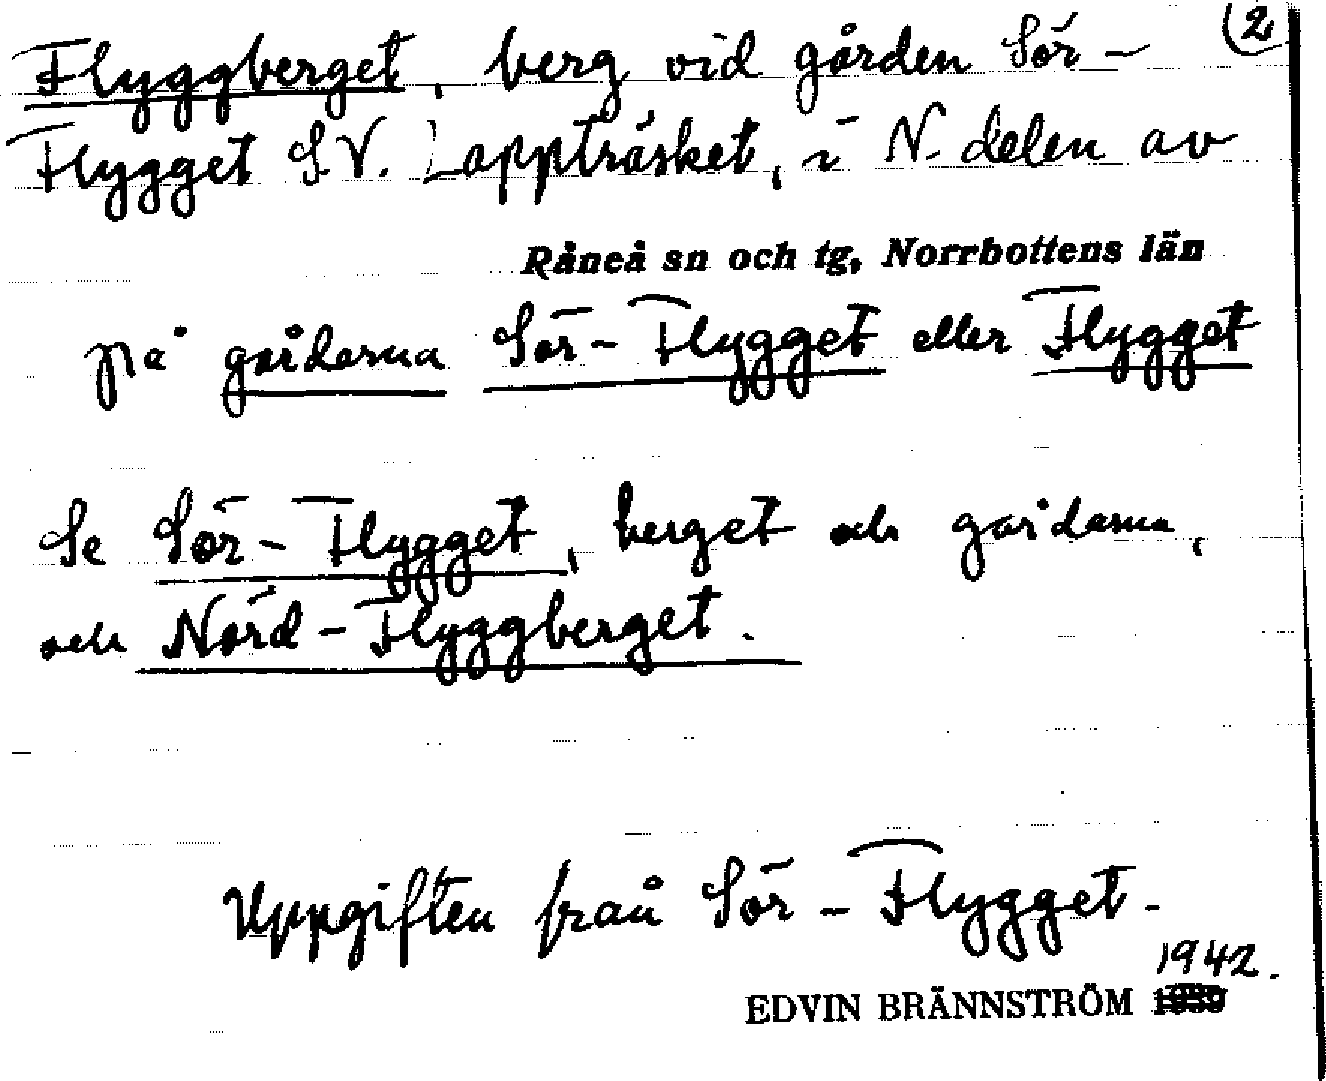 2
Flyggberget, berg vid gården Sör-
Flygget S.V. Lappträsket, i N. delen av
Råneå sn och tg, Norrbottens län
på gårdarna Sör-Flygget eller Flygget
Se Sör-Flygget, berget och gårdarna,
och Nörd-Flyggberget.
Uppgiften från Sör-Flygget.
1942.
EDVIN BRÄNNSTRÖM